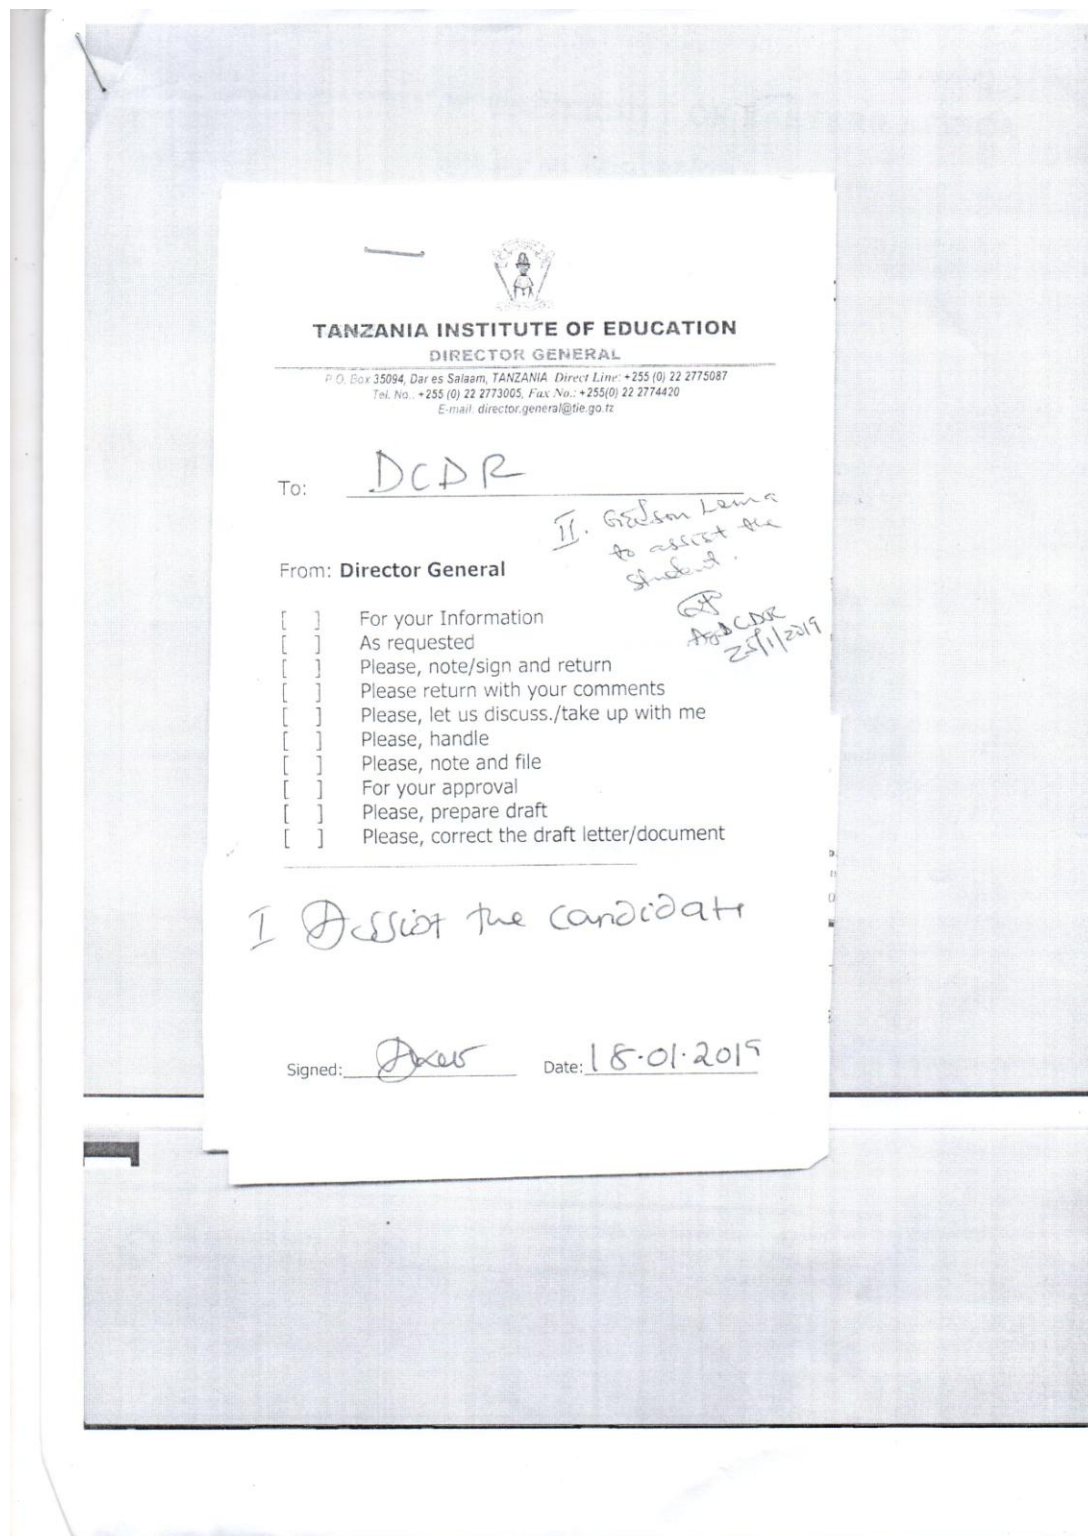 TANZANIA INSTITUTE OF EDUCATION
DIRECTOR GENERAL
P.O. Box 35094, Dar es Salaam, TANZANIA Direct Line: +255 (0) 22 2775087
Tel. No.: +255 (0) 22 2773005, Fax No.: +255(0) 22 2774420
E-mail: director.general@tie.go.tz
To: DCDR
II. Lema
to assist the
student.
25/1/2019
From: Director General
[ ] For your Information
[ ] As requested
[ ] Please, note/sign and return
[ ] Please return with your comments
[ ] Please, let us discuss./take up with me
[ ] Please, handle
[ ] Please, note and file
[ ] For your approval
[ ] Please, prepare draft
[ ] Please, correct the draft letter/document
I Assist the candidate
Signed:
Date: 18.01.2019